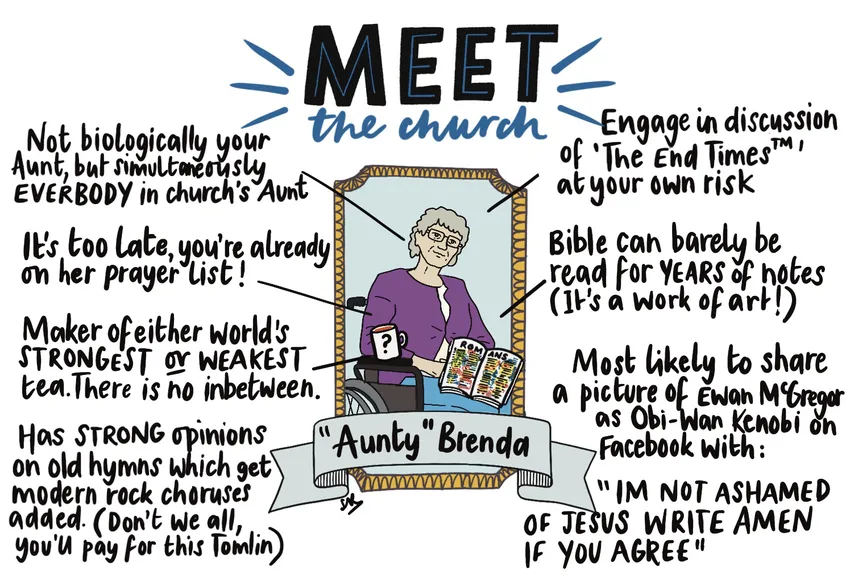 MEET
the church
Not biologically your
Aunt, but simultaneously
EVERBODY in church's Aunt
It's too late, you're already
on her prayer list!
Maker of either world's
STRONGEST or WEAKEST
tea. There is no inbetween.
Has STRONG opinions
on old hymns which get
modern rock choruses
added. (Don't we all,
you'll pay for this Tomlin)
Engage in discussion
of 'The End Times™'
at your own risk
Bible can barely be
read for YEARS of notes
(It's a work of art!)
Most likely to share
a picture of Ewan McGregor
as Obi-Wan Kenobi on
Facebook with:
"IM NOT ASHAMED
OF JESUS WRITE AMEN
IF YOU AGREE"
?
ROMANS
"Aunty" Brenda